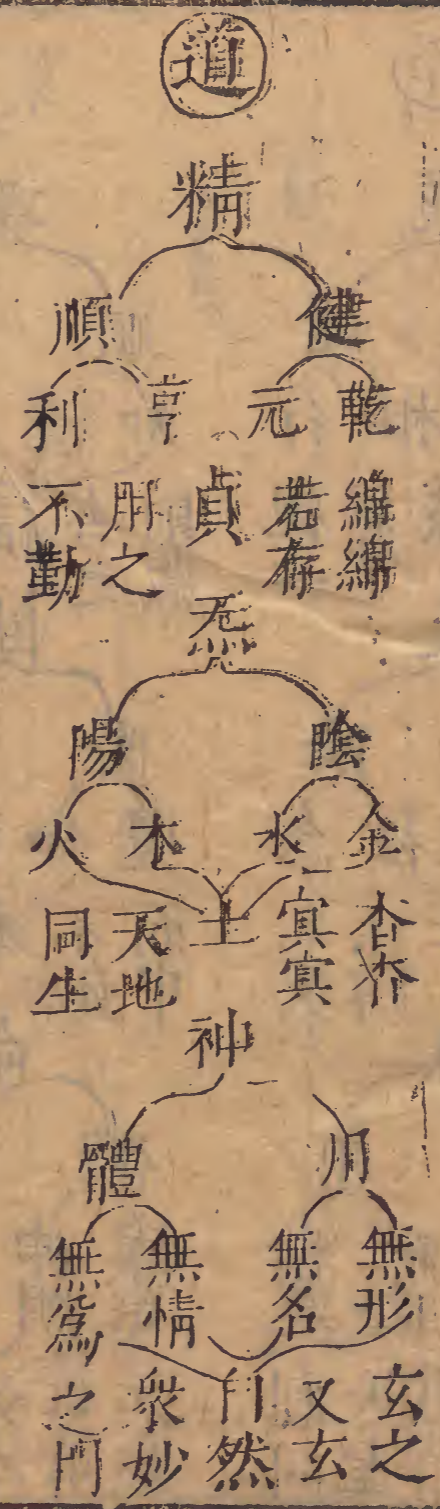 道
精
健 順
乾 元 亨 利
綿綿 若存 貞 用之 不勤
炁
陰 陽
金 水 木 火
土
杳杳 㝠㝠 天地 同生
神
用 體
無形 無名 無情 無爲
玄之 又玄 自然 衆妙 之門